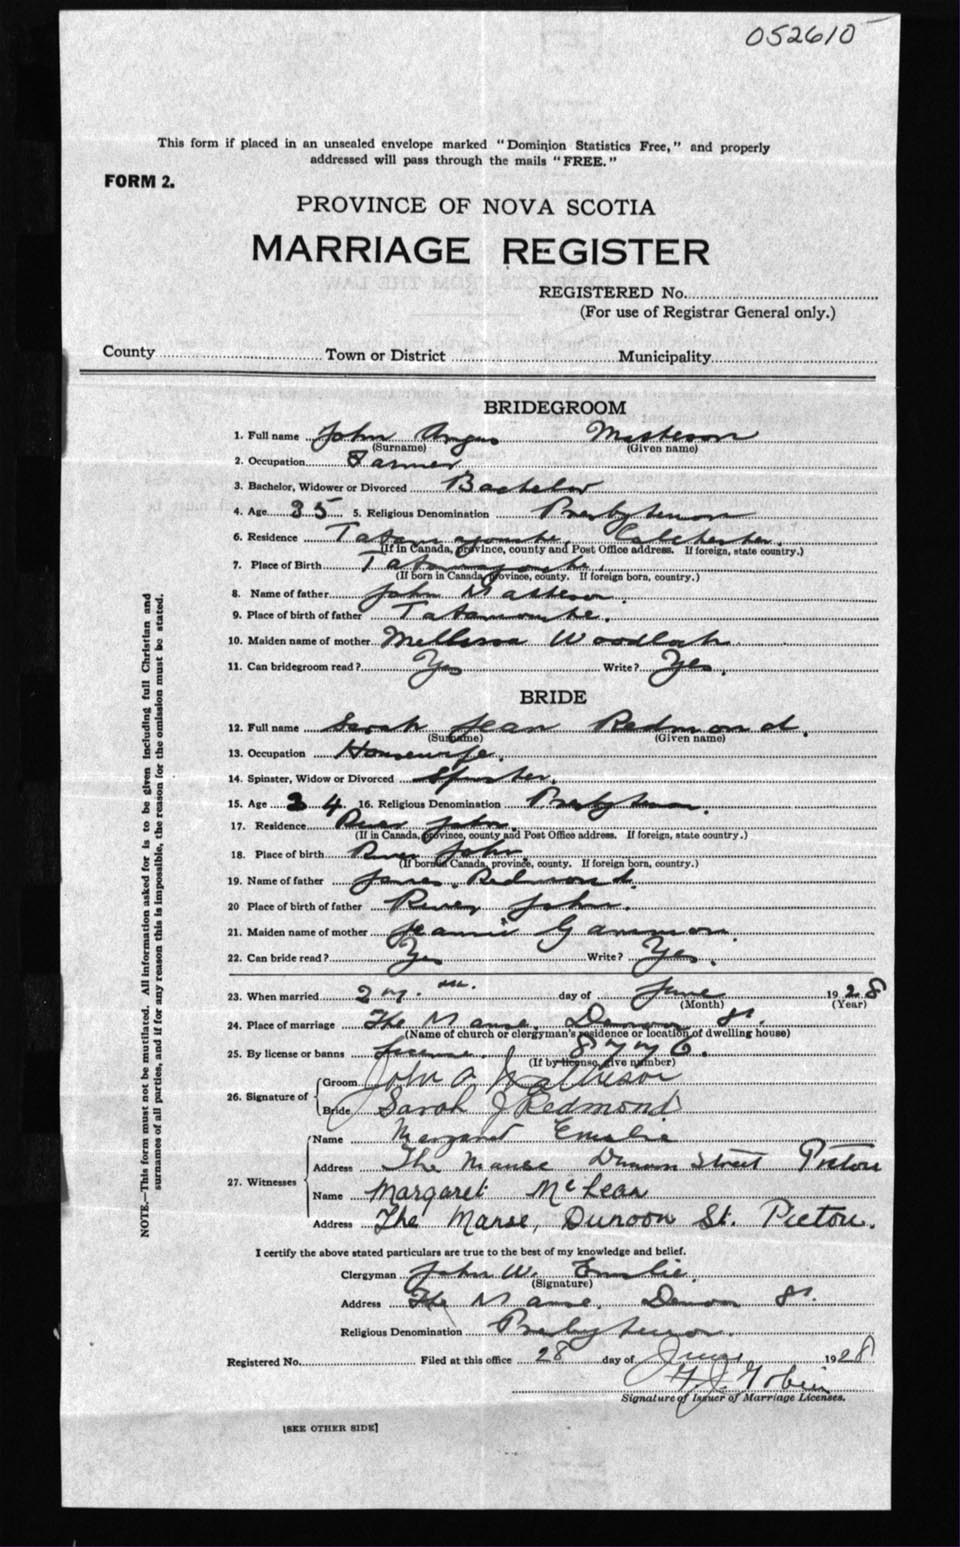 052610
This form if placed in an unsealed envelope marked "Dominion Statistics Free," and properly
addressed will pass through the mails "FREE."
FORM 2.
PROVINCE OF NOVA SCOTIA
MARRIAGE REGISTER
REGISTERED No.
(For use of Registrar General only.)
County Town or District Municipality
BRIDEGROOM
1. Full name John Angus
(Surname) (Given name)
2. Occupation Farmer
3. Bachelor, Widower or Divorced Bachelor
4. Age 35 5. Religious Denomination Presbyterian
6. Residence Colchester.
(If in Canada, province, county and Post Office address. If foreign, state country.)
7. Place of Birth
(If born in Canada, province, county. If foreign born, country.)
8. Name of father John Matteson.
9. Place of birth of father
10. Maiden name of mother Mellissa
11. Can bridegroom read? Yes Write? Yes.
BRIDE
12. Full name Sarah Jean Redmond.
(Surname) (Given name)
13. Occupation Housewife.
14. Spinster, Widow or Divorced Spinster.
15. Age 34 16. Religious Denomination Presbyterian.
17. Residence River John.
(If in Canada, province, county and Post Office address. If foreign, state country.)
18. Place of birth River John.
(If born in Canada, province, county. If foreign born, country.)
19. Name of father James Redmond.
20 Place of birth of father River John.
21. Maiden name of mother Jeannie Gammon.
22. Can bride read? Yes Write? Yes.
23. When married day of June 1928
(Month) (Year)
24. Place of marriage The Manse, Dunoon St.
(Name of church or clergyman's residence or location of dwelling house)
25. By license or banns License. 8776.
(If by license, give number)
26. Signature of Groom John A Matheson
Bride Sarah J Redmond
27. Witnesses Name Margaret Emslie
Address The Manse Dunoon Street Pictou
Name Margaret McLean
Address The Manse, Dunoon St. Pictou.
I certify the above stated particulars are true to the best of my knowledge and belief.
Clergyman John W. Emslie.
(Signature)
Address The Manse, Dunoon St.
Religious Denomination Presbyterian.
Registered No. Filed at this office 28 day of June 1928
Signature of Issuer of Marriage Licenses.
[SEE OTHER SIDE]
NOTE.—This form must not be mutilated. All information asked for is to be given including full Christian and
surnames of all parties, and if for any reason this is impossible, the reason for the omission must be stated.